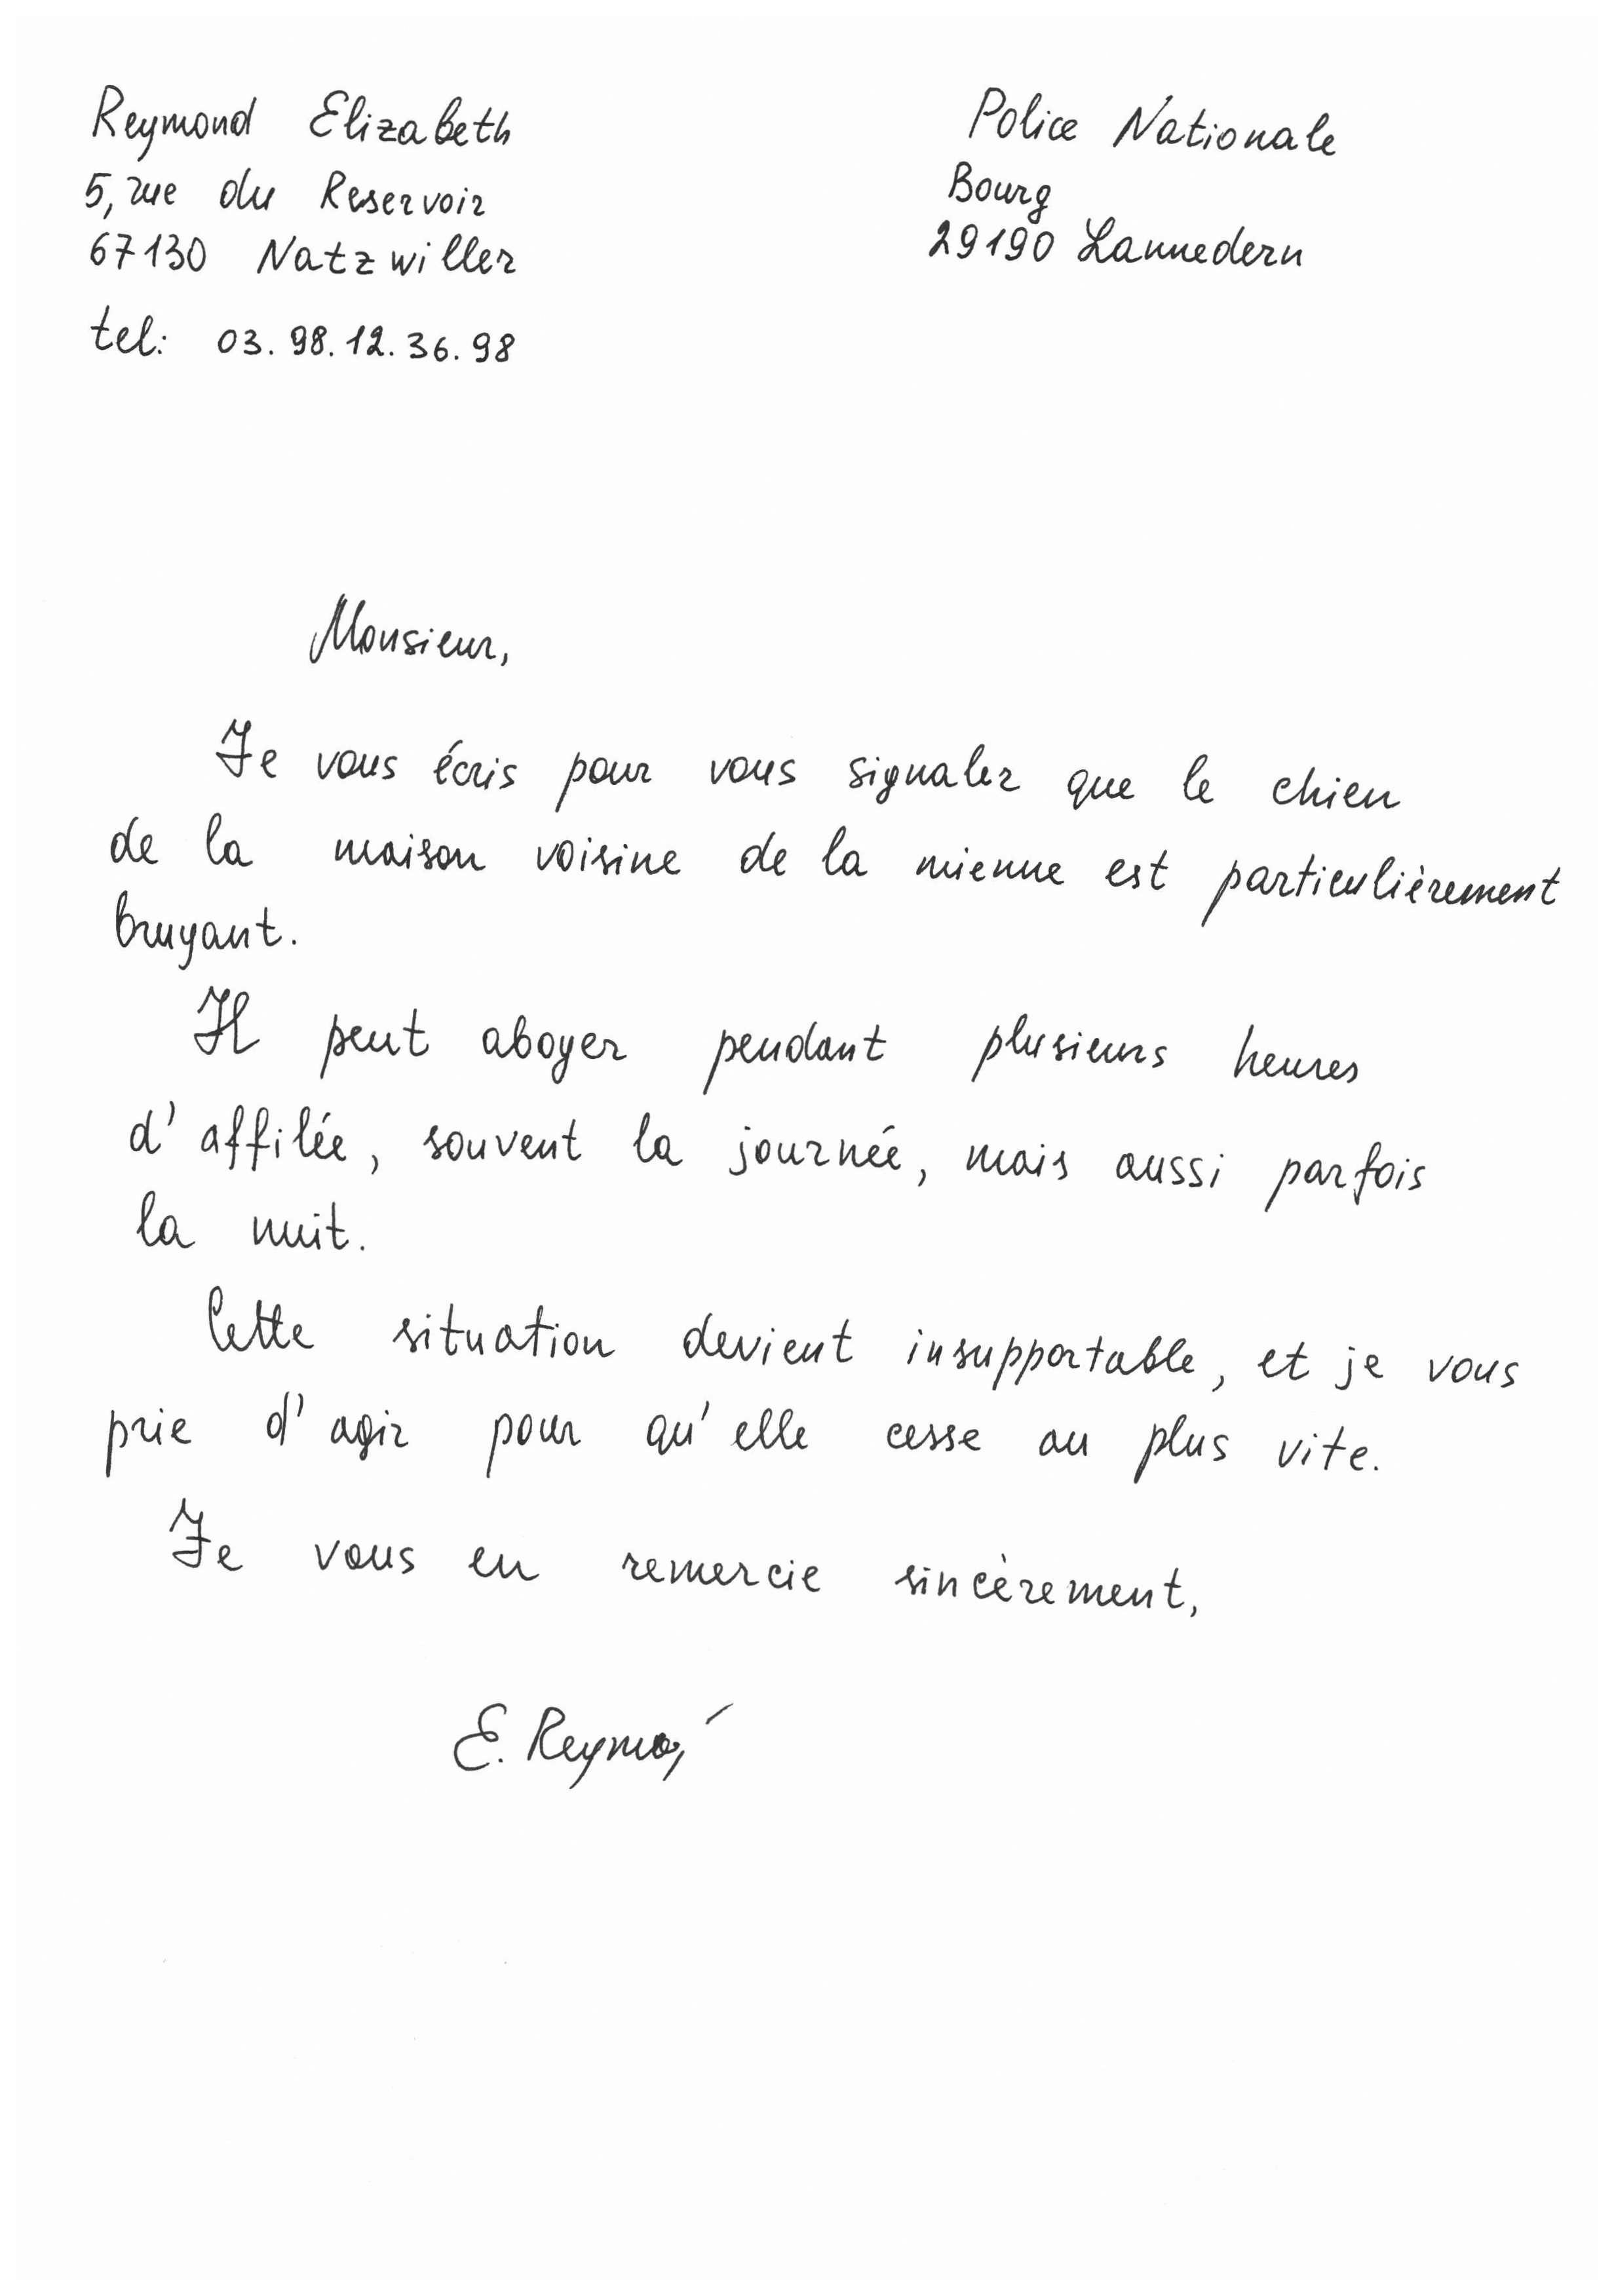 Reymond Elizabeth
5, rue du Reservoir
67130 Natzwiller
tel: 03.98.12.36.98
Police Nationale
Bourg
29190 Lannedern
Monsieur,
Je vous écris pour vous signaler que le chien
de la maison voisine de la mienne est particulièrement
bruyant.
Il peut aboyer pendant plusieurs heures
d'affilée, souvent la journée, mais aussi parfois
la nuit.
Cette situation devient insupportable, et je vous
prie d'agir pour qu'elle cesse au plus vite.
Je vous en remercie sincèrement,
E. Reymond